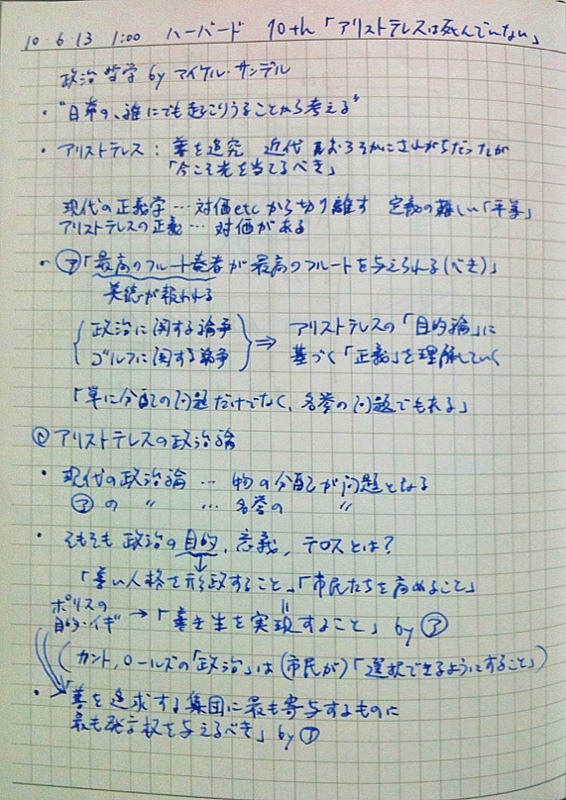 10 6 13 1:00 ハーバード 10th「アリストテレスは死んでいない」
政治哲学 by マイケル・サンデル
・"日常の、誰にでも起こりうることから考える"
・アリストテレス：善を追究 近代 おろそかにされがちだったが
「今こそ光を当てるべき」
現代の正義学…対価etcから切り離す 定義の難しい「平等」
アリストテレスの正義…対価がある
・ア「最高のフルート奏者が最高のフルートを与えられる(べき)」
美徳が報われる
政治に関する論争
ゴルフに関する論争
⇒ アリストテレスの「目的論」に
基づく「正義」を理解していく
「単に分配の問題だけでなく、名誉の問題でもある」
◎アリストテレスの政治論
・現代の政治論…物の分配が問題となる
アの 〃 …名誉の 〃
・そもそも政治の目的、意義、テロスとは？
↓
「善い人格を形政すること」「市民たちを高めること」
ポリスの
目的・イギ → 「善き生を実現すること」by ア
(カント、ロールズの「政治」は(市民が)「選択できるようにすること」)
・「善を追求する集団に最も寄与するものに
最も発言権を与えるべき」by ア